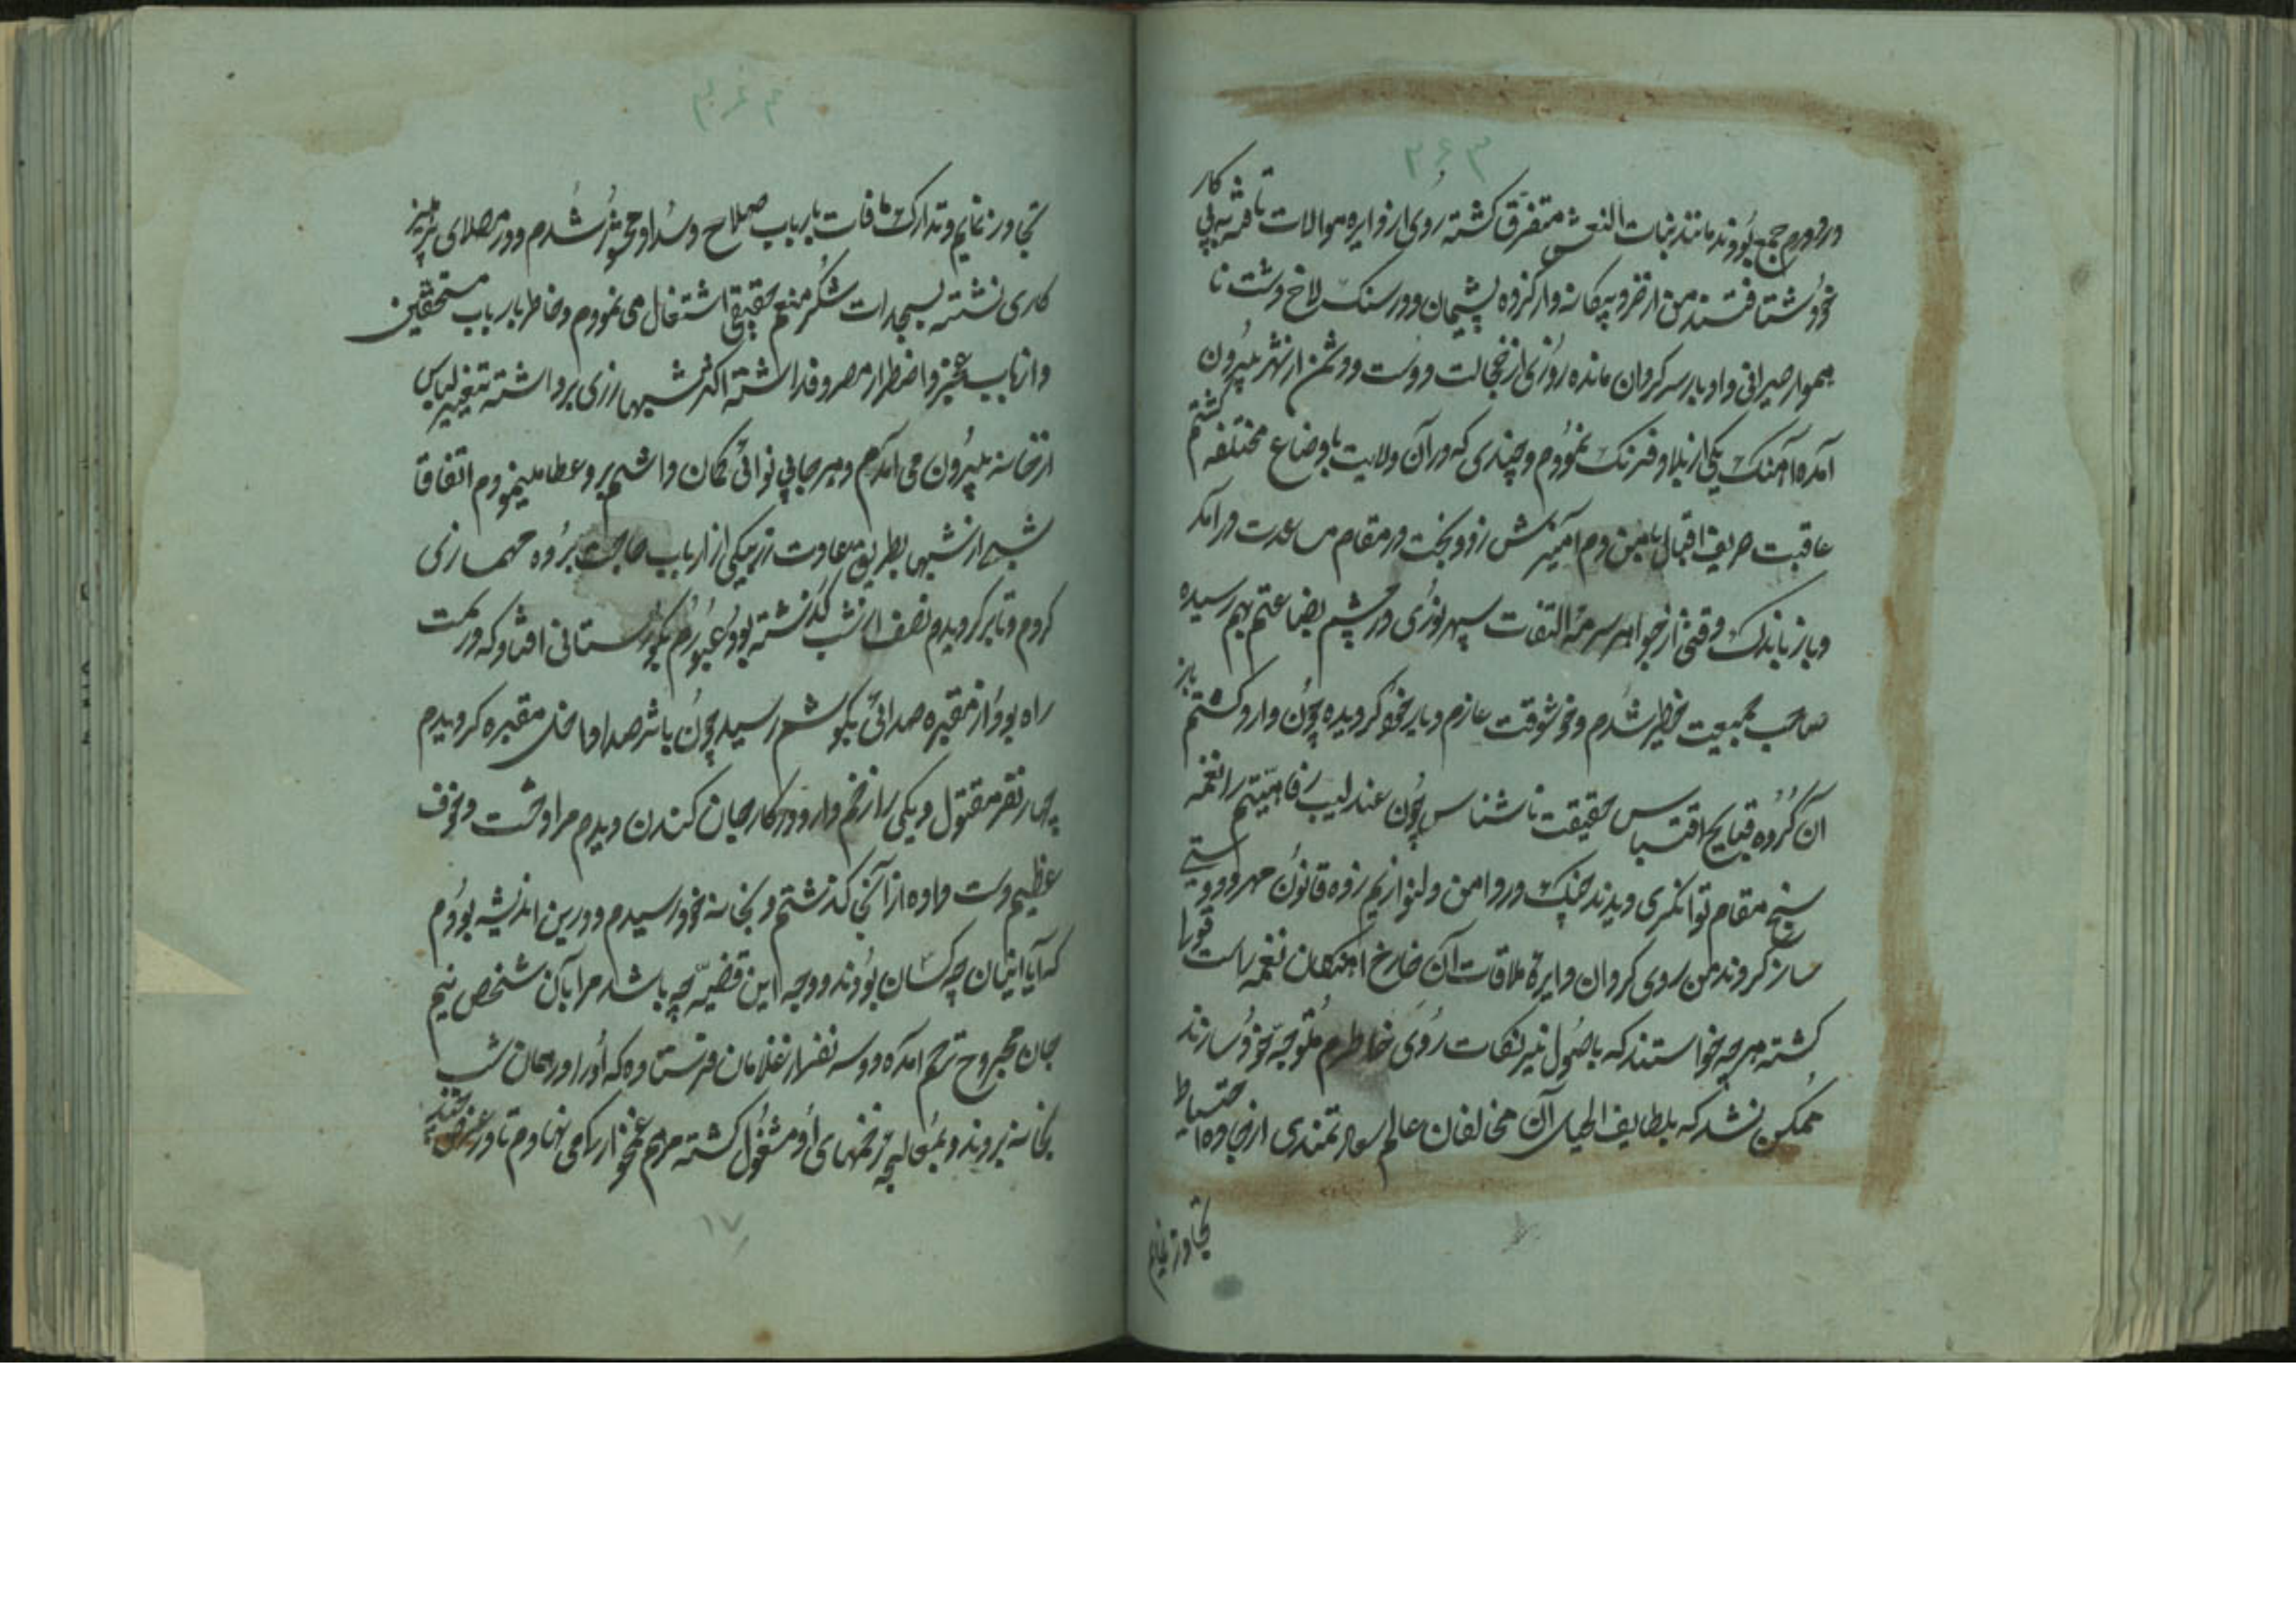 ۳۶۳
در دورم جمع بودند مانند بنات النعش متفرق کشته روی از دایره موالات تافته پی کار
خود شتافتند من از خرد بیکانه و از کرده پشیمان و در سنک لاخ دشت نا
هموار حیرانی و ادبار سرکردان مانده روزی از خجالت دوست و دشمن از شهر بیرون
آمده آهنک یکی از بلاد فرنک نمودم و چندی که در آن ولایت باوضاع مختلفه کشتم
عاقبت حریف اقبال با من دم آمیزش زد و بخت در مقام مساعدت در آمد
و باز باندک وقتی از جواهر سرمه التفات سپهر نوری در چشم بضاعتم بهم رسیده
صاحب جمعیت خطیر شدم و خوشوقت عازم دیار خود کردیده چون وارد کشتم باز
آن کروه قبایح اقتباس حقیقت ناشناس چون عندلیب رفاهیتم را نغمه
سنج مقام توانکری دیدند چنک در دامن دلنوازیم زده قانون مهر و دوستی
ساز کردند من روی کردان دایره ملاقات آن خارج آهنکان نغمه راست قولی
کشته هر چه خواستند که باصول نیرنکات روی خاطرم متوجه خود سازند
ممکن نشد که بلطایف الحیل آن مخالفان عالم سعادتمندی از جاده احتیاط
تجاوز نمایم
۳۶۴
تجاوز نمایم و تدارک مافات بارباب صلاح و سداد محشور شدم و در مصلای پرهیز
کاری نشسته بسجدات شکر منعم حقیقی اشتغال می نمودم و خاطر بارباب مستحقین
و ارباب عجز و اضطرار مصروف داشته اکثر شبها زری برداشته بتغییر لباس
از خانه بیرون می آمدم و هر جا بی نوائی کمان داشتم بر و عطا مینمودم اتفاقا
شبی از شبها بطریق معاودت زر بیکی از ارباب حاجت برده مهمسازی
کردم و تا بر کردیدم نصف از شب کذشته بود و عبورم بکورستانی افتاد که در سمت
راه بود و از مقبره صدائی بکوشم رسید چون باثر صدا داخل مقبره کردیدم
چهار نفر مقتول و یکی را زخم دار و در کار جان کندن دیدم مرا وحشت و خوف
عظیم دست داده از آنجا کذشتم و بخانه خود رسیدم و درین اندیشه بودم
که آیا اینان چه کسان بودند و وجه این قضیه چه باشد مرا بآن شخص نیم
جان مجروح ترحم آمده دو سه نفر از غلامان فرستاده که او را در همان شب
بخانه بردند و بمعالجه زخمهای او مشغول کشته مرهم غمخواری می نهادم تا در عرض چند
۱۷